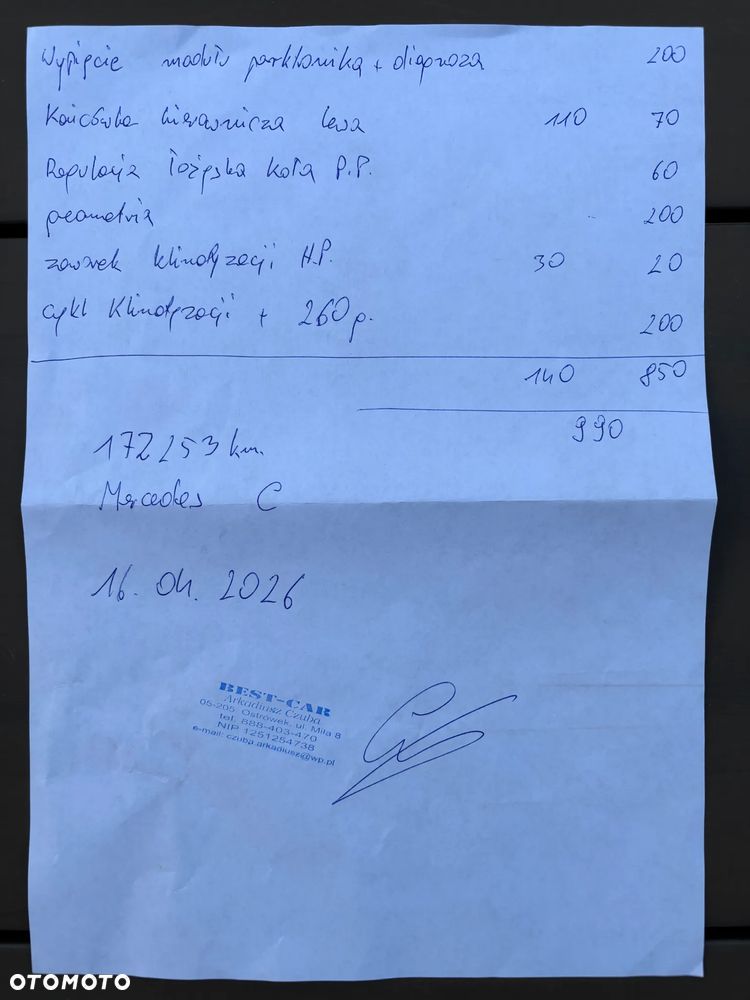 Wypięcie modułu parktronika + diagnoza 200
Końcówka kierownicza lewa 110 70
Regulacja łożyska koła P.P. 60
geometria 200
zaworek klimatyzacji H.P. 30 20
cykl klimatyzacji + 260g. 200
140 850
990
172253 km.
Mercedes C
16. 04. 2026
BEST-CAR
Arkadiusz Czuba
05-205 Ostrówek, ul. Miła 8
tel. 888-403-470
NIP 1251254738
e-mail: czuba.arkadiusz@wp.pl
OTOMOTO